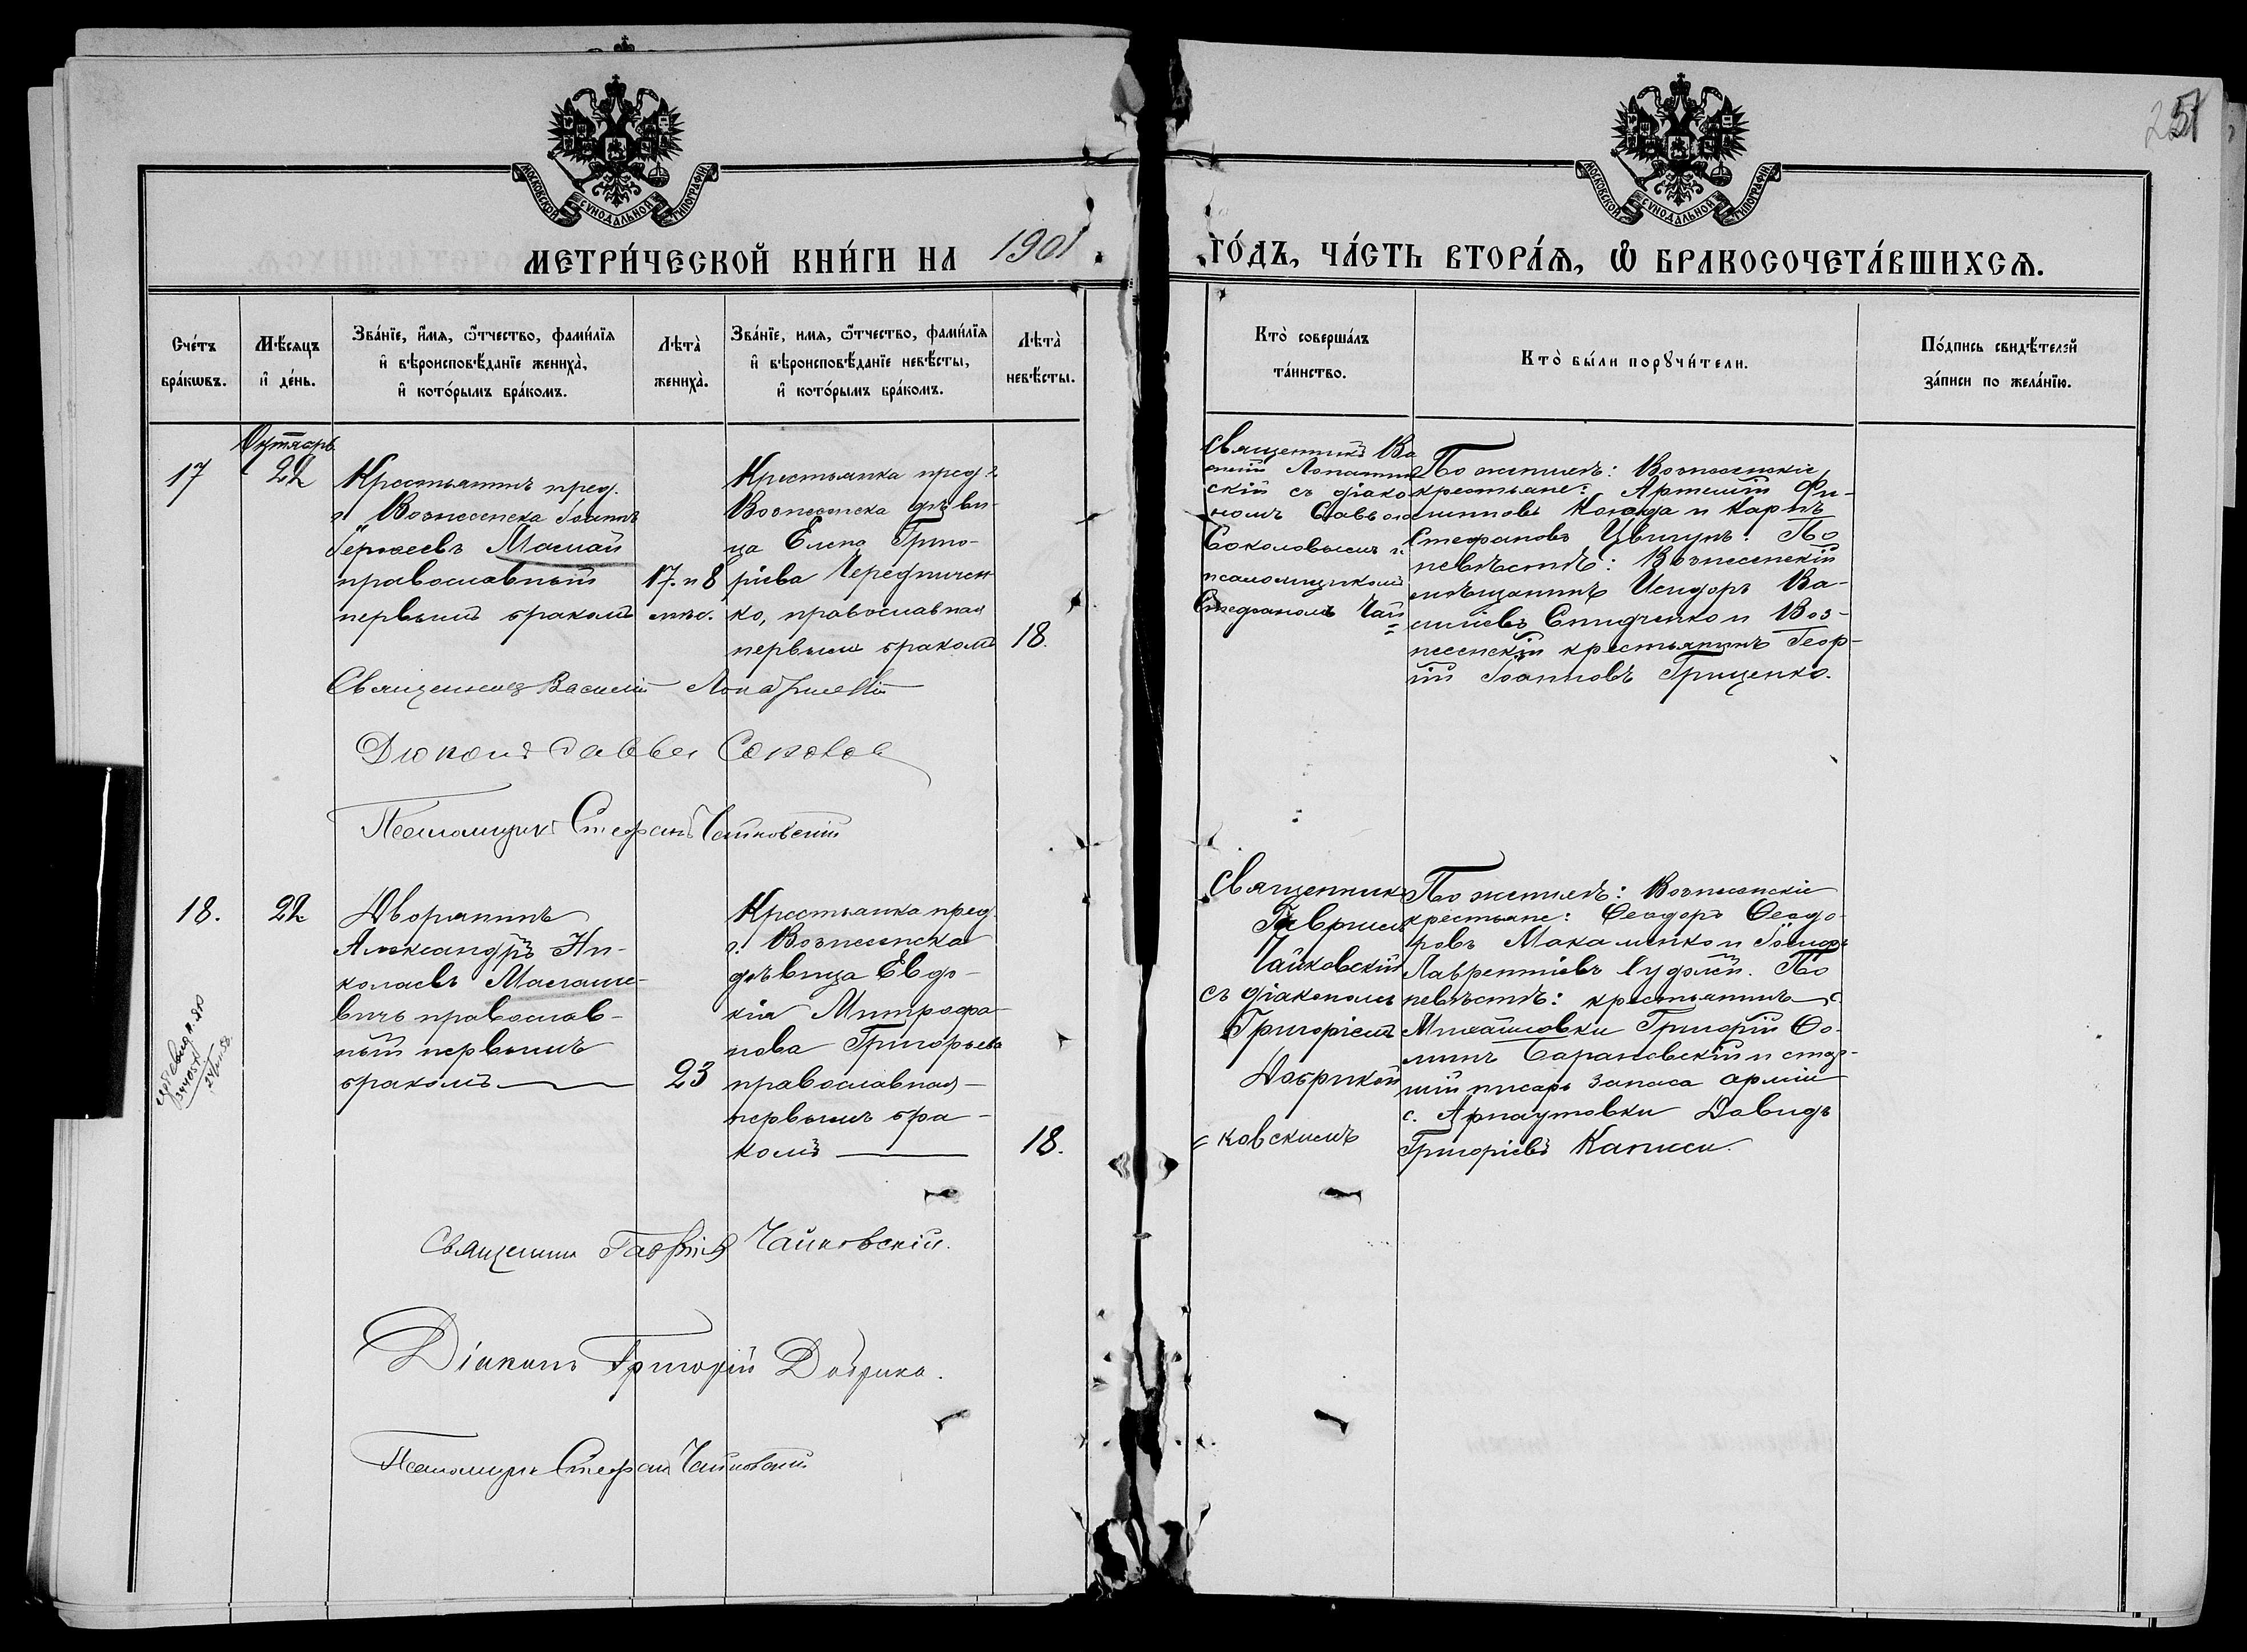 251
МОСКОВСКОЙ СѴНОДАЛЬНОЙ ТИПОГРАФІИ
МОСКОВСКОЙ СѴНОДАЛЬНОЙ ТИПОГРАФІИ
МЕТРИ́ЧЕСКОЙ КНИ́ГИ НА 1901
ГО́ДЪ, ЧА́СТЬ ВТОРА́Ѧ, Ѡ БРАКОСОЧЕТА́ВШИХСѦ.
Сче́тъ
бра́кѡвъ.
Мѣ́сяцъ
и҆ де́нь.
Зва́нїе, и҆́мѧ, ѻ҆́тчество, фами́лїѧ
и҆ вѣроисповѣ́данїе жениха̀,
и҆ кото́рымъ бра́комъ.
Лѣта̀
жениха̀.
Зва́нїе, имѧ, ѻ҆́тчество, фами́лїѧ
и҆ вѣроисповѣ́данїе невѣ́сты,
и҆ кото́рымъ бра́комъ.
Лѣта̀
невѣ́сты.
Кто̀ соверша́лъ
та́инство.
Кто̀ бы́ли порꙋчи́тели.
По́дпись свидѣ́телей
за́писи по жела́нїю.
17
Октябрь
22
Крестьянинъ пред.
г. Вознесенска Іоаннъ
Сергѣевъ Маслай
православный
первымъ бракомъ
17. и 8
мѣс.
Крестьянка пред. г.
Вознесенска дѣви-
ца Елена Григо-
ріева Чередничен-
ко, православная
первымъ бракомъ
18.
Священникъ Ва
силій Лопатин
скій съ діако
номъ Саввою
Соколовымъ и
псаломщикомъ
Стефаномъ Чай
=
По женихѣ: Вознесенскіе
крестьяне: Артемій Фи-
липповъ Коляда и Карпъ
Стефановъ Цвигунъ. По
невѣстѣ: Вознесенскій
мѣщанинъ Исидоръ Ва-
силіевъ Спидченко и Воз-
несенскій крестьянинъ Геор-
гій Іоанновъ Гриценко.
Священникъ Василій Лопатинскій
Діаконъ Савва Соколов
Псаломщикъ Стефанъ Чайковскій
18.
22
Дворянинъ
Александръ Ни-
колаевъ Маслаше-
вичъ православ-
ный первымъ
бракомъ
23
Крестьянка пред.
г. Вознесенска
дѣвица Евдо-
кія Митрофа-
нова Григорьева
православная
первымъ бра-
комъ
18.
Священникъ
Гавріилъ
Чайковскій
съ діакономъ
Григоріемъ
Добрикой
= ковскимъ
По женихѣ: Вознесенскіе
крестьяне: Ѳеодоръ Ѳеодо-
ровъ Макаменко и Іосифъ
Лаврентіевъ Гудолей. По
невѣстѣ: крестьянинъ с.
Михайловки Григорій Ѳо-
минъ Барановскій и стар-
шій писарь запаса арміи
с. Арнаутовки Давидъ
Григоріевъ Каписи.
Священник Гавріилъ Чайковскій.
Діаконъ Григорій Добрика.
Псаломщикъ Стефанъ Чайковскій